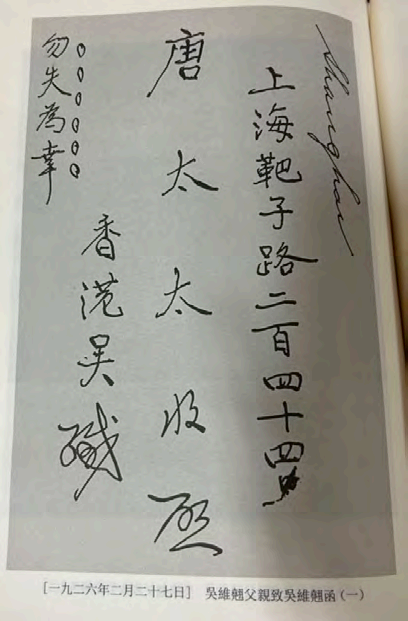 Shanghai
上海靶子路二百四十四号
唐太太收啟
香港吳緘
勿失為幸
[一九二六年二月二十七日] 吳維翹父親致吳維翹函(一)